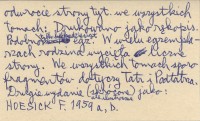 odwrocie strony tyt. we wszystkich
tomach: Drukowano jako rękopis.
egz. W wielu egzempla-
rzach rodzina wycięła liczne
strony. We wszystkich tomach sporo
fragmentów dotyczy Tatr i Podtatrza.
Drugie wydanie (skrócone) jako:
HOESICK F. 1959 a, D.